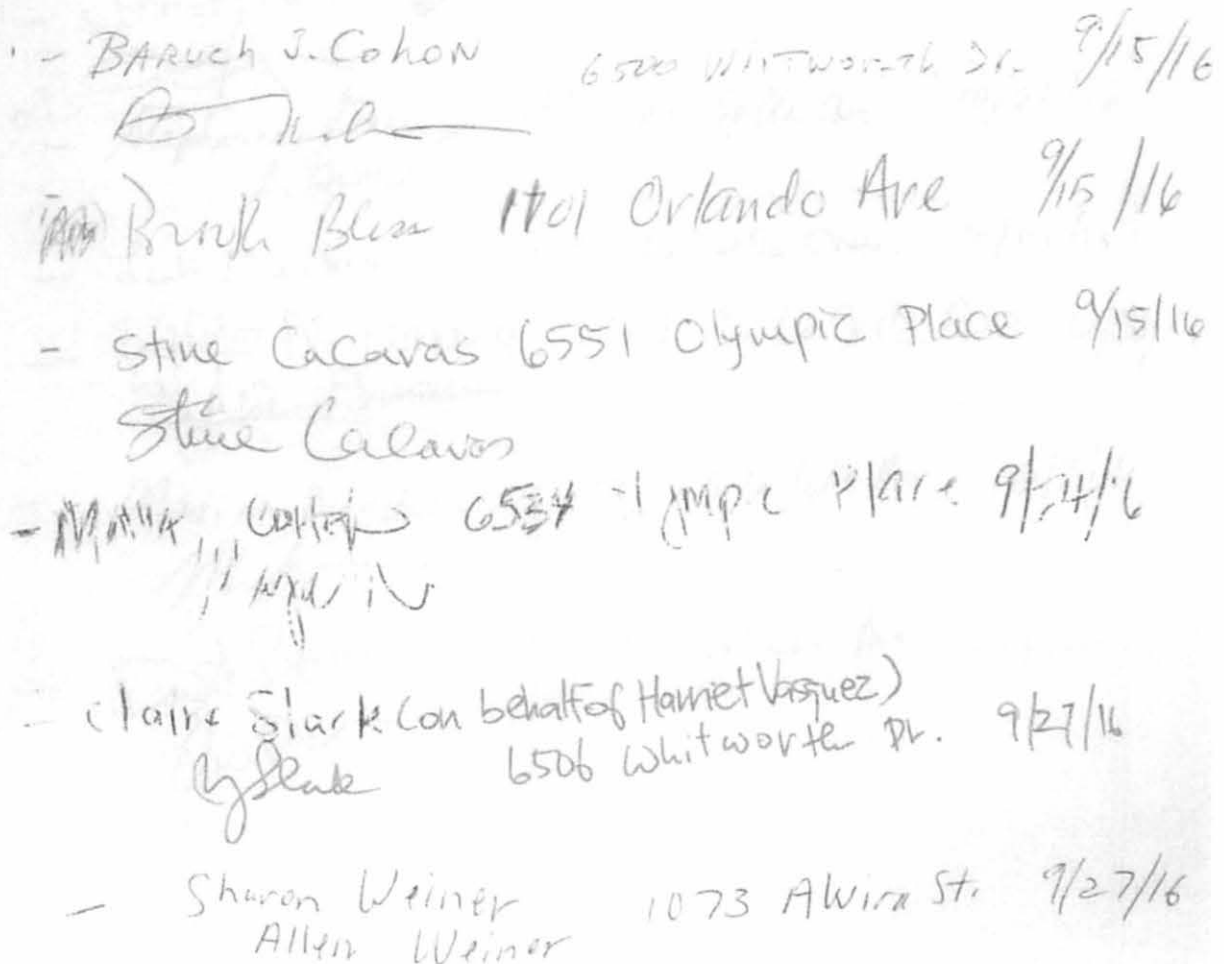 - BARUCH J. COHON 6500 WHITWORTH Dr. 9/15/16
Bliss 1101 Orlando Ave 9/15/16
- Stine Cacavas 6551 Olympic Place 9/15/16
Stine Cacavas
- 6534 Place
- Claire Slark (on behalf of Harriet Vasquez)
6506 Whitworth Dr. 9/27/16
- Sharon Weiner 1073 Alvira St. 9/27/16
Allen Weiner